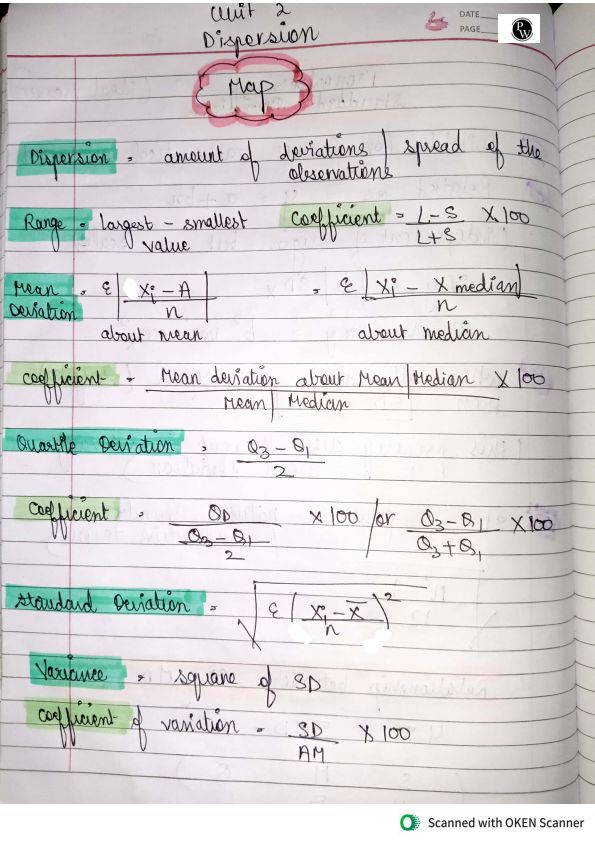 Unit 2
Dispersion
DATE
PAGE
PW
Map
Dispersion = amount of deviations | spread of the observations
Range = largest - smallest value
Coefficient = L-S / L+S X 100
Mean Deviation = ε | Xi - A | / n about mean
= ε | Xi - X median | / n about median
Coefficient = Mean deviation about Mean | Median / Mean | Median X 100
Quartile Deviation = Q3 - Q1 / 2
Coefficient = QD / Q3 - Q1 / 2 X 100 / or Q3 - Q1 / Q3 + Q1 X 100
Standard Deviation = √ ε ( Xi - X̅ / n )²
Variance = square of SD
Coefficient of variation = SD / AM X 100
Scanned with OKEN Scanner